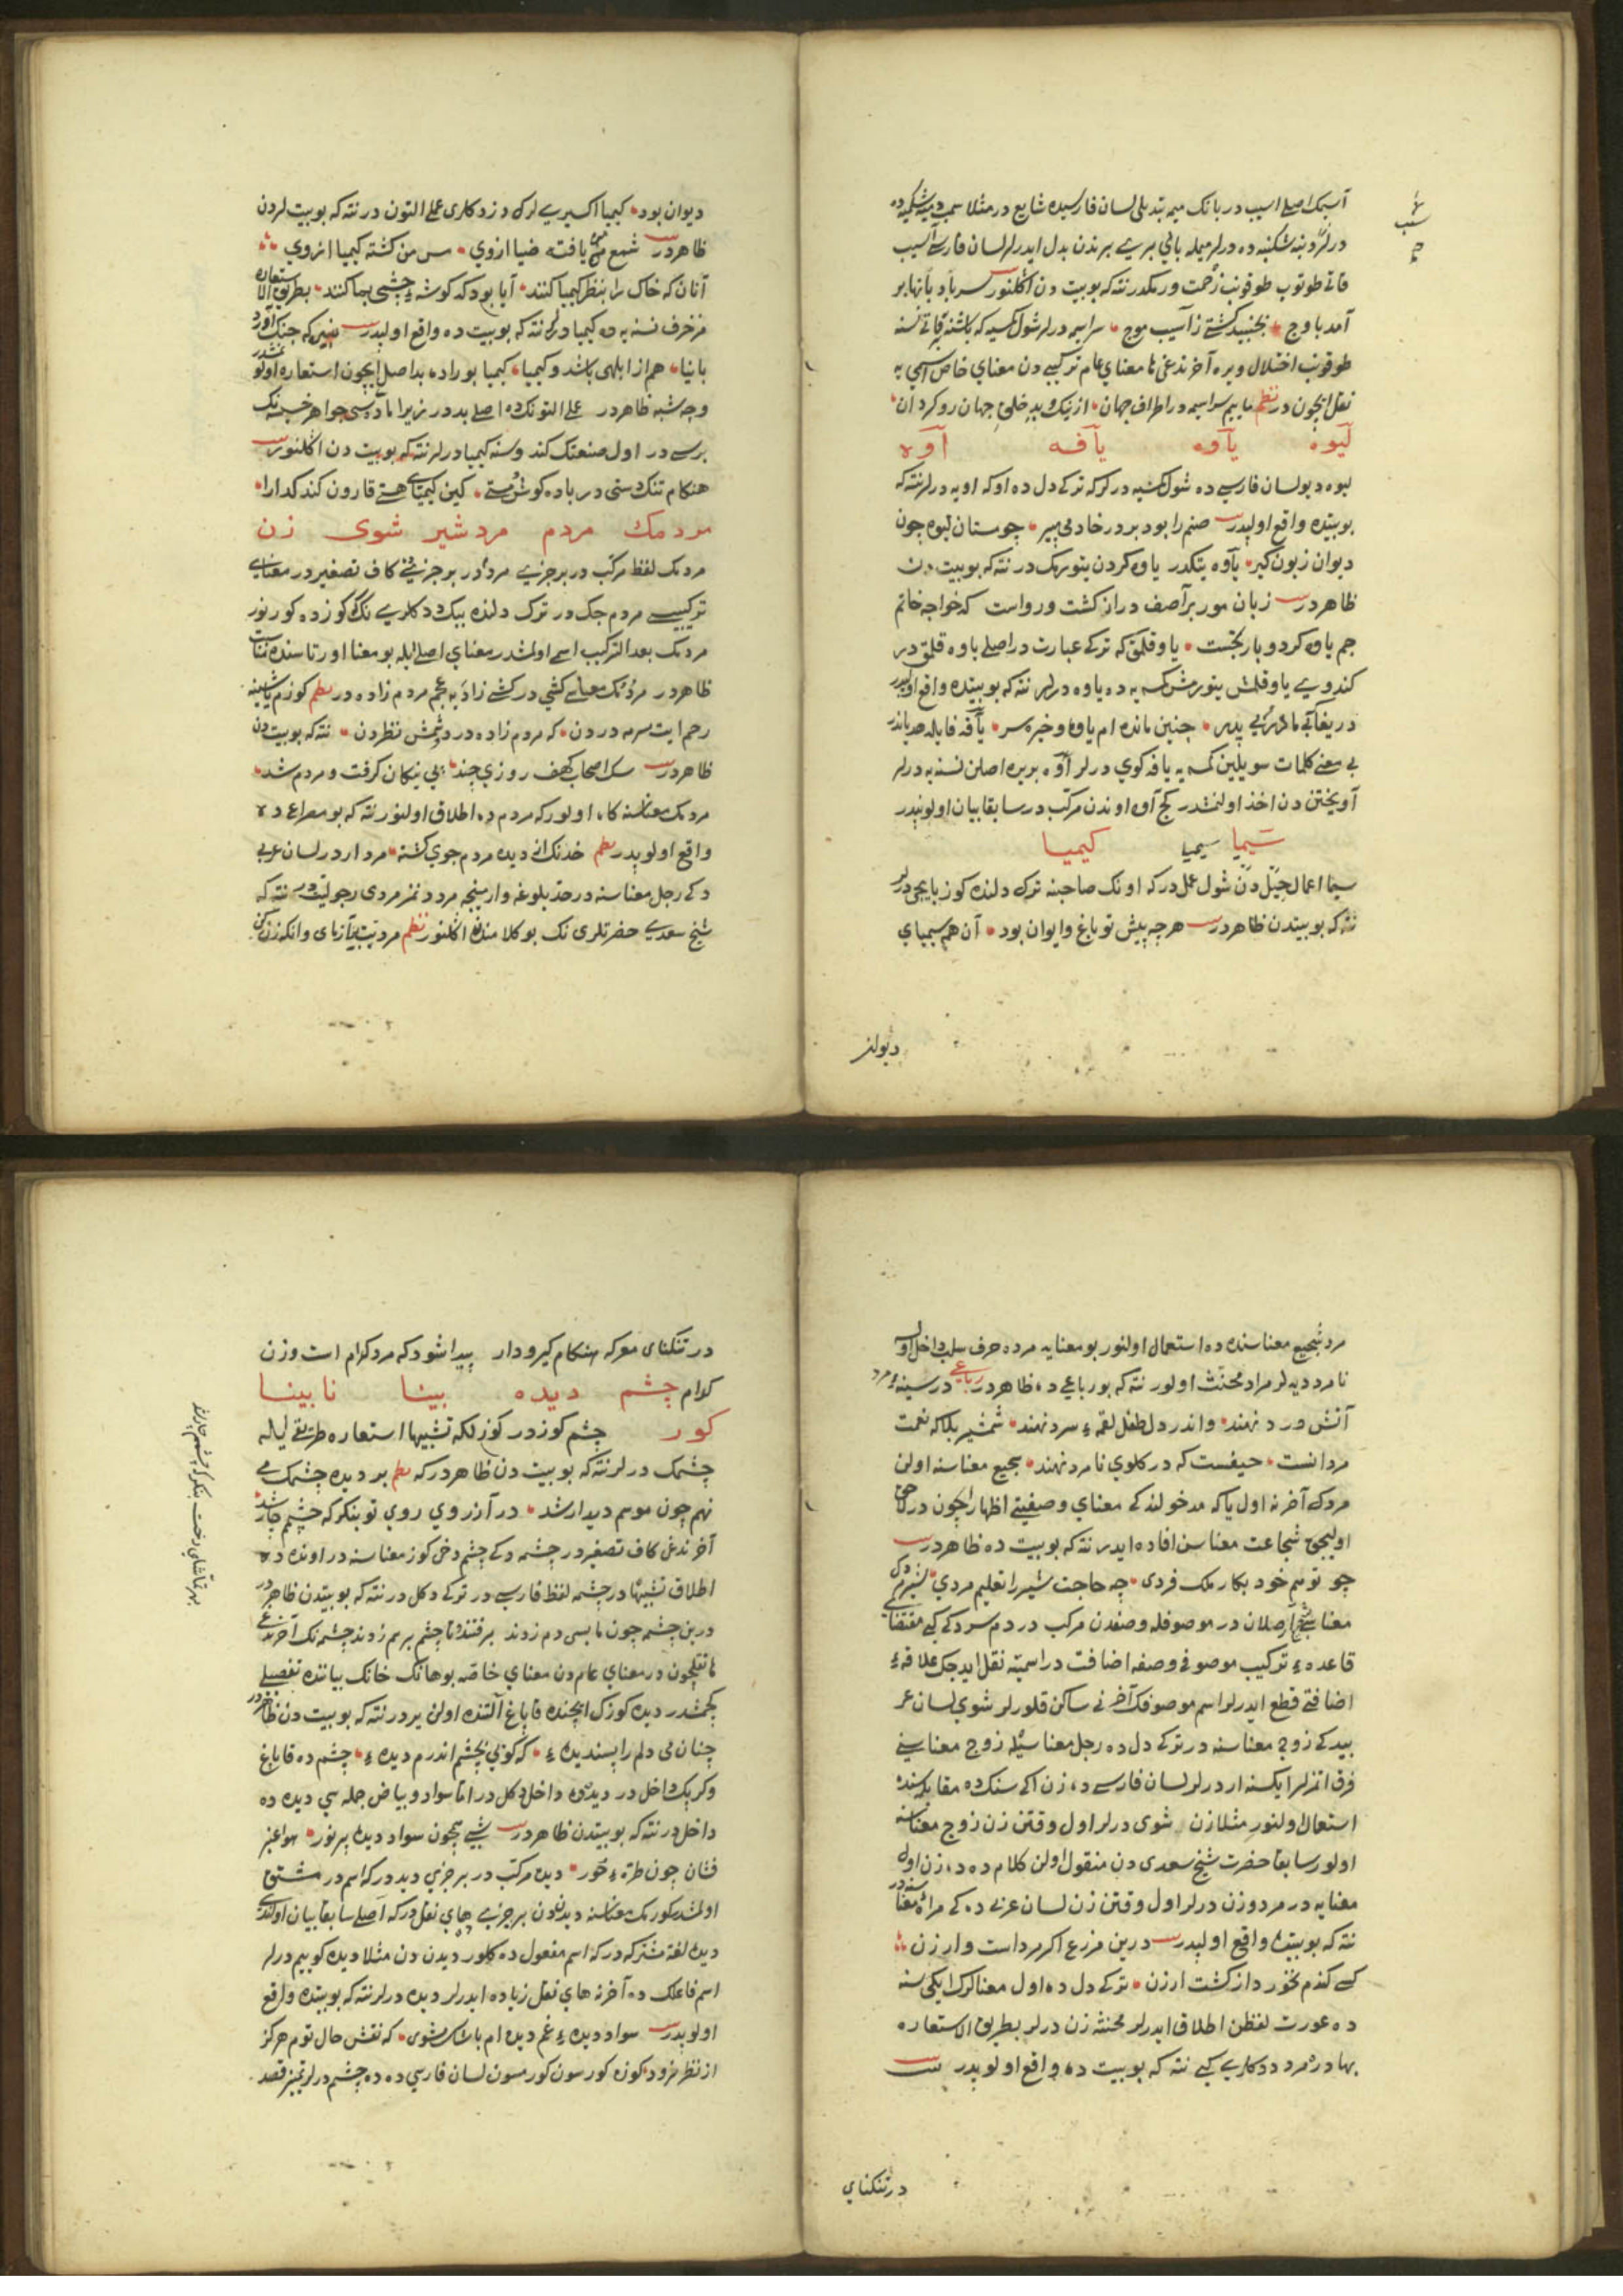 آسیمک اصلی اسیب در بانک میمه تبدیلی لسان فارسیده شایع در مثلا
در لر دنبه شکنبه ده درلر میمله بائی بری برندن بدل ایدرلر لسان فارسی آسیب
قاتی طوتوب طوقونب زحمت ورمکدر نته که بو بیت دن اکلنور سر باد بانها بر
آمد باوج بجنبید کشتی ز آسیب موج سراسیمه درلر شول کسیه که باشنه قاتی نسنه
طوقونب اختلال ویره آخرنده غی ها معنای عام ترکیبی دن معنای خاص اسمی یه
نقل ایچون در نظم ماییم سراسیمه در اطراف جهان از نیک و بد خلق جهان رو کردان
لیوه یاوه یافه آوه
لیوه دیو لسان فارسی ده شول کمسیه درلر که ترکی دل ده اوکه اویه درلر نته که
بو بیتده واقع اولیدر صنم را بود بر در خادمی پیر چو مستان لیوه چون
دیوان زبون کیر یاوه یتکدر یاوه کردن یتورمک در نته که بو بیت دن
ظاهردر زبان مور بر آصف دراز کشت و رواست که خواجه خاتم
جم یاوه کرد و باز نجست یاوقلمق که ترکی عبارت در اصلی یاوه قلمق در
کندویی یاوقلمش یتورمش کمسه یه ده یاوه درلر نته که بو بیتده واقع اولیدر
دریغا بی مادر بی پدر چنین مانده ام یاوه و خیره سر یافه فا یله هذیاندر
بی معنی کلمات سویلین کمسه یه یافه کوی درلر آوه بربره اصلن نسنه یه درلر
آویختن دن اخذ اولنمشدر کج آوه اوندن مرکب در سابقا بیان اولوندر
سیمیا سیمیا کیمیا
سیمیا اعمال حیل دن شول عمل در که اونک صاحبنه ترک دلنده کوز بایجی درلر
نته که بو بیتدن ظاهردر هر چه پیش تو باغ و ایوان بود آن هم سیمیای
دیوان
دیوان بود کیمیا اکسیری لرک دزدکلری عمل التون در نته که بو بیت لردن
ظاهردر شمع یافته ضیا از وی مس من کشته کیمیا از وی
آنان که خاک را بنظر کیمیا کنند آیا بود که کوشه چشمی بما کنند بطریق الاستعاره
مزخرف نسنه یه ده کیمیا درلر نته که بو بیت ده واقع اولیدر که جنک آورد
بانیا هم از ابلهی باشد و کیمیا کیمیا بوراده بداصل ایچون استعاره اولونمشدر
وجه شبه ظاهردر عمل التونک ده اصلی بددر زیرا ماده سی جواهر خسیسه نک
بریسی در اول صنعتک کندوسنه کیمیا درلر نته که بو بیت دن اکلنور
هنکام تنک دستی در باده کوش و مستی کین کیمیای هستی قارون کند کدا را
مردمک مردم مرد شیر شوی زن
مردمک لفظ مرکب در بر جزئی مردم در بر جزئی کاف تصغیر در معنای
ترکیبی مردم جک در ترک دلنده ببک ددکلری نک کوزده کورنور
مردمک بعد الترکیب اسم اولمشدر معنای اصلی ایله بو معنا اورتاسنده مناسبت
ظاهردر مردمک معناسی کشی در کشی زاده یه عجم مردم زاده در نظم کوزم یاشینه
رحم ایت سرمه دردن که مردم زاده در دوشمش نظردن نته که بو بیت دن
ظاهردر سک اصحاب کهف روزی چند پی نیکان کرفت و مردم شد
مردمک معناسنه کاه اولور که مردم ده اطلاق اولنور نته که بو مصراع ده
واقع اولوبدر نظم خدنک انی دیده مردم جوی کشته مرد ار در لسان عربی
دکی رجل معناسنه در حد بلوغه وارمینجه مرد دنمز مردی رجولیت در نته که
شیخ سعدی حضرتلری نک بو کلامندن اکلنور نظم مردیت بیازمای وانکه زن کن
مرد شجیع معناسنده ده استعمال اولنور بو معنایه مرده حرف سلب داخل اولسه
نامرد دیه لر مراد مخنث اولور نته که بو رباعی ده ظاهردر رباعی در سینه مرد
آتش درد نهند واندر دل طفل لقمه سرد نهند شمشیر بلا که نعمت
مردانست حیفست که در کلوی نامرد نهند شجیع معناسنه اولن
مردک آخرنه اول یا که مدخولنه کی معنای وصفیتی اظهار ایچون در لاحق
اولیجق شجاعت معناسن افاده ایدر نته که بو بیت ده ظاهردر
چو توسم خود بکار ملک فردی چه حاجت شیر را تعلیم مردی شیر مرد
معناسی ارصلان در موصوفله وصفدن مرکب در دم سرد کبی مقتضای
قاعده ترکیب موصوفی وصفه اضافت در اسمیته نقل ایدیجک علاقه
اضافتی قطع ایدرلر اسم موصوفک آخرنی ساکن قلورلر شوی لسان عر
بیدکی زوج معناسنه در ترکی دل ده رجل معناسیله زوج معناسنی
فرق اتمزلر ایکسنه ار درلر لسان فارسی ده زن اکی سنک ده مقابلسنده
استعمال اولنور مثلا زن شوی درلر اول وقتن زن زوج معناسنه
اولور سابقا حضرت شیخ سعدی دن منقول اولن کلام ده ده زن اول
معنایه در مرد و زن درلر اول وقتن زن لسان عربی ده کی مراه معناسنه در
نته که بو بیتده واقع اولیدر درین مزرع اکر مرد است و ار زن
کسی کندم نخورد از کشت ارزن ترکی دل ده اول معنالرک ایکی سنه
ده عورت لفظن اطلاق ایدرلر مخنثه زن درلر بطریق الاستعاره
بهادره مرد ددکلری کبی نته که بو بیت ده واقع اولوبدر بیت
در تنکنای
در تنکنای معرکه هنکام کیرودار پیدا شود که مرد کدام است و زن
کدام چشم دیده بینا نابینا
کور چشم کوز در کوزلکه تشبیها استعاره طریقی ایله
چشمک درلر نته که بو بیت دن ظاهردر که نظم بر دیده چشمک می
نهم چون موسم دیدار شد در آرزوی روی تو بنکر که چشمم چار شد
آخرنده غی کاف تصغیر در چشمه دکی چشم دخی کوز معناسنه در اونده ده
اطلاق تشبیهادر چشمه لفظ فارسی در ترکی دکل در نته که بو بیتدن ظاهردر
درین چشمه چون ما بسی دم زدند برفتند تا چشم بر هم زدند چشمه نک آخرنده غی
ها نقل ایچون در معنای عام دن معنای خاصه بو هانک خانک بیاننده تفصیلی
کچمشدر دیده کوزک ایچنده قاباغ آلتنده اولن یردر نته که بو بیت دن ظاهردر
چنان می دلم را پسندیده که کویی بچشم اندرم دیده چشم ده قاباغ
و کرپک داخل در دیده ده داخل دکل در اما سواد و بیاض جمله سی دیده ده
داخل در نته که بو بیتدن ظاهردر شبی همچون سواد دیده پر نور هوا عنبر
فشان چون طره حور دیده مرکب در بر جزئی دید در که اسم در مشتق
اولمشدر کورمک معناسنه دیدن دن بر جزئی های نقل در که اصلی سابقا بیان اولندی
دیده لفظ مشترکه در که اسم مفعول ده کلور دیدن دن مثلا دیده کوییم درلر
اسم فاعلک ده آخرنه های نقل زیاده ایدرلر دیده درلر نته که بو بیتده واقع
اولوبدر سواد دیده غم دیده ام باشک مشوی که نقش خال توم هرکز
از نظر نرود کوزه کورسون کورمسون لسان فارسی ده ده چشم درلر تمیز قصد